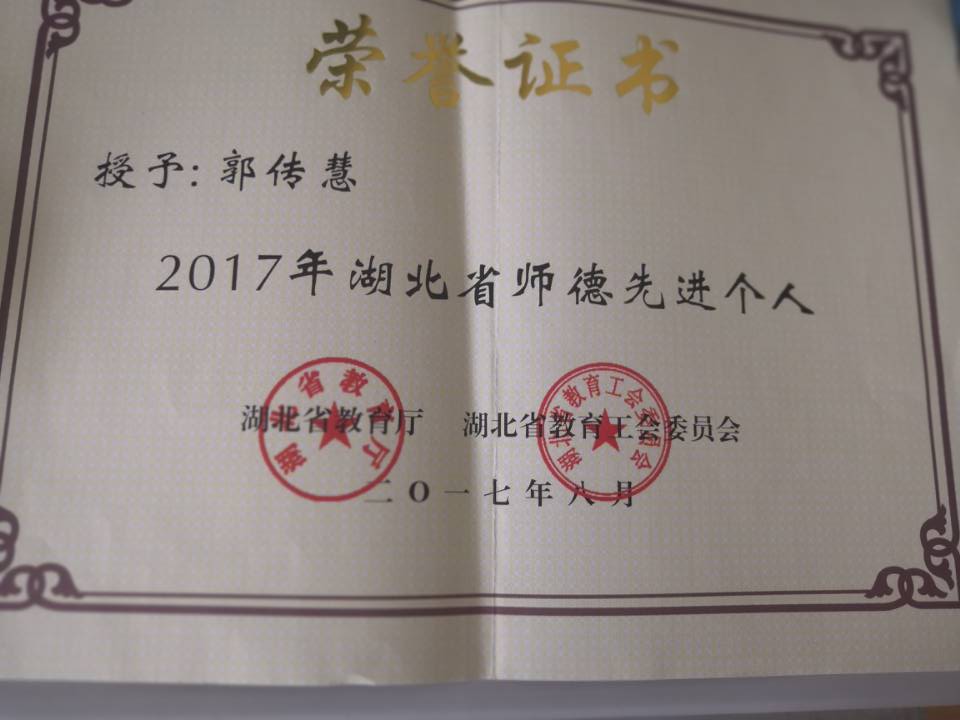 荣誉证书
授予:郭传慧
2017年湖北省师德先进个人
湖北省教育厅 湖北省教育工会委员会
湖北省教育厅
湖北省教育工会委员会
二〇一七年八月